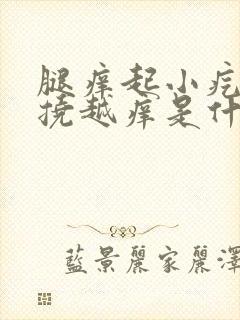 腿痒起小疙
挠越痒是什
藍景麗家麗澤